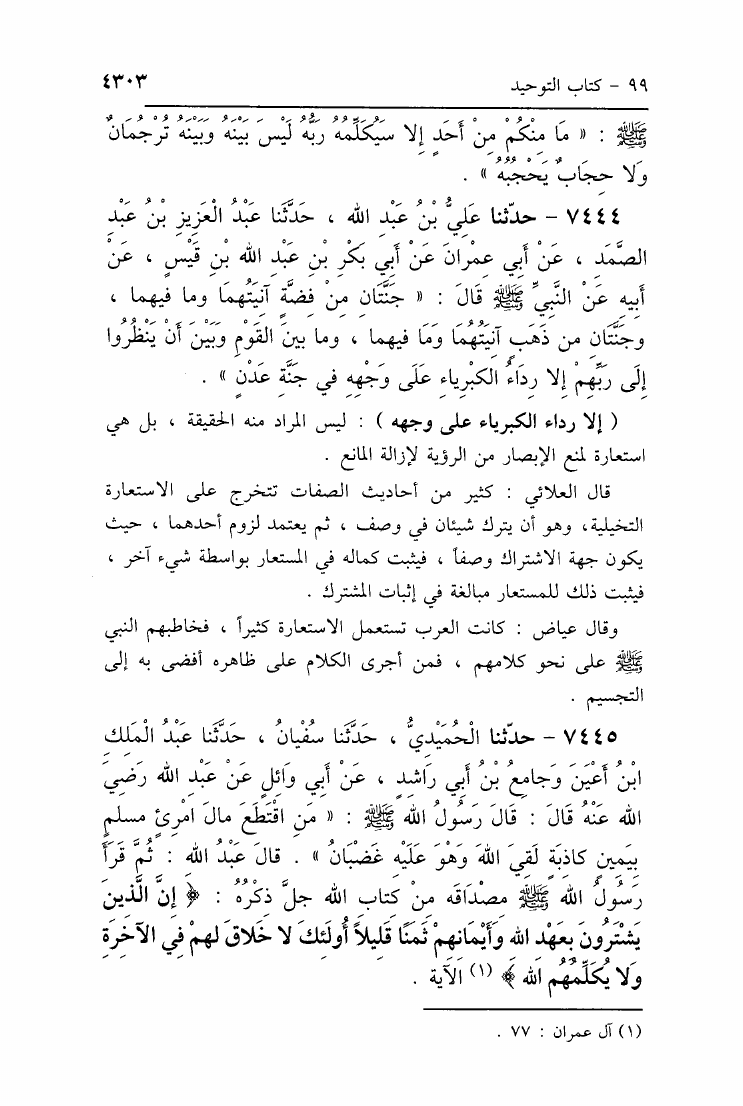 ٩٩ - كتاب التوحيد ٤٣٠٣
ﷺ : « مَا مِنْكُمْ مِنْ أَحَدٍ إلا سَيُكَلِّمُهُ رَبُّهُ لَيْسَ بَيْنَهُ وبَيْنَه تُرْجُمَانٌ
وَلا حِجَابٌ يَحْجُبُهُ » .
٧٤٤٤ - حدّثنا عَلِيُّ بْنُ عَبْدِ الله ، حَدَّثَنا عَبْدُ الْعَزِيزِ بْنُ عَبْدِ
الصَّمَدِ ، عَنْ أبي عِمْرانَ عَنْ أبي بَكْرِ بنِ عَبْدِ الله بْنِ قَيْسٍ ، عَنْ
أبِيهِ عَنْ النَّبيِّ ﷺ قَالَ : « جَنَّتَانِ مِنْ فِضَّةٍ آنِيَتُهُمَا وما فيهما ،
وجَنَّتَانِ من ذَهَبٍ آنِيَتُهُمَا وَمَا فيهما ، وما بينَ القَوْمِ وَبَيْنَ أنْ يَنْظُرُوا
إلَى رَبِّهِمْ إلا رِدَاءُ الكِبْرِياءِ عَلَى وَجْهِهِ في جَنَّةِ عَدْنٍ » .
( إلا رداء الكبرياء على وجهه ) : ليس المراد منه الحقيقة ، بل هي
استعارة لمنع الإبصار من الرؤية لإزالة المانع .
قال العلائي : كثير من أحاديث الصفات تتخرج على الاستعارة
التخيلية، وهو أن يترك شيئان في وصف ، ثم يعتمد لزوم أحدهما ، حيث
يكون جهة الاشتراك وصفاً ، فيثبت كماله في المستعار بواسطة شيء آخر ،
فيثبت ذلك للمستعار مبالغة في إثبات المشترك .
وقال عياض : كانت العرب تستعمل الاستعارة كثيراً ، فخاطبهم النبي
ﷺ على نحو كلامهم ، فمن أجرى الكلام على ظاهره أفضى به إلى
التجسيم .
٧٤٤٥ - حدّثنا الْحُمَيْدِيُّ ، حَدَّثَنا سُفْيانُ ، حَدَّثَنا عَبْدُ الْمَلِكِ
ابْنُ أعْيَنَ وَجامِعُ بْنُ أبي رَاشِدٍ ، عَنْ أبي وَائِلٍ عَنْ عَبْدِ الله رَضِيَ
الله عَنْهُ قَالَ : قَالَ رَسُولُ الله ﷺ : « مَنِ اقْتَطَعَ مالَ امْرِئٍ مسلمٍ
بِيَمِينٍ كاذِبَةٍ لَقِيَ اللهَ وَهْوَ عَلَيْهِ غَضْبَانُ » . قالَ عَبْدُ الله : ثُمَّ قَرَأ
رَسُولُ الله ﷺ مِصْدَاقَه مِنْ كتابِ الله جلَّ ذكْرُهُ : ﴿ إِنَّ الَّذِينَ
يَشْتَرُونَ بِعَهْدِ الله وَأَيْمَانِهِمْ ثَمَنًا قَلِيلاً أُولَئِكَ لا خَلاقَ لهمْ فِي الآخِرَةِ
وَلا يُكَلِّمُهُم الله ﴾ (١) الآيةَ .
(١) آل عمران : ٧٧ .